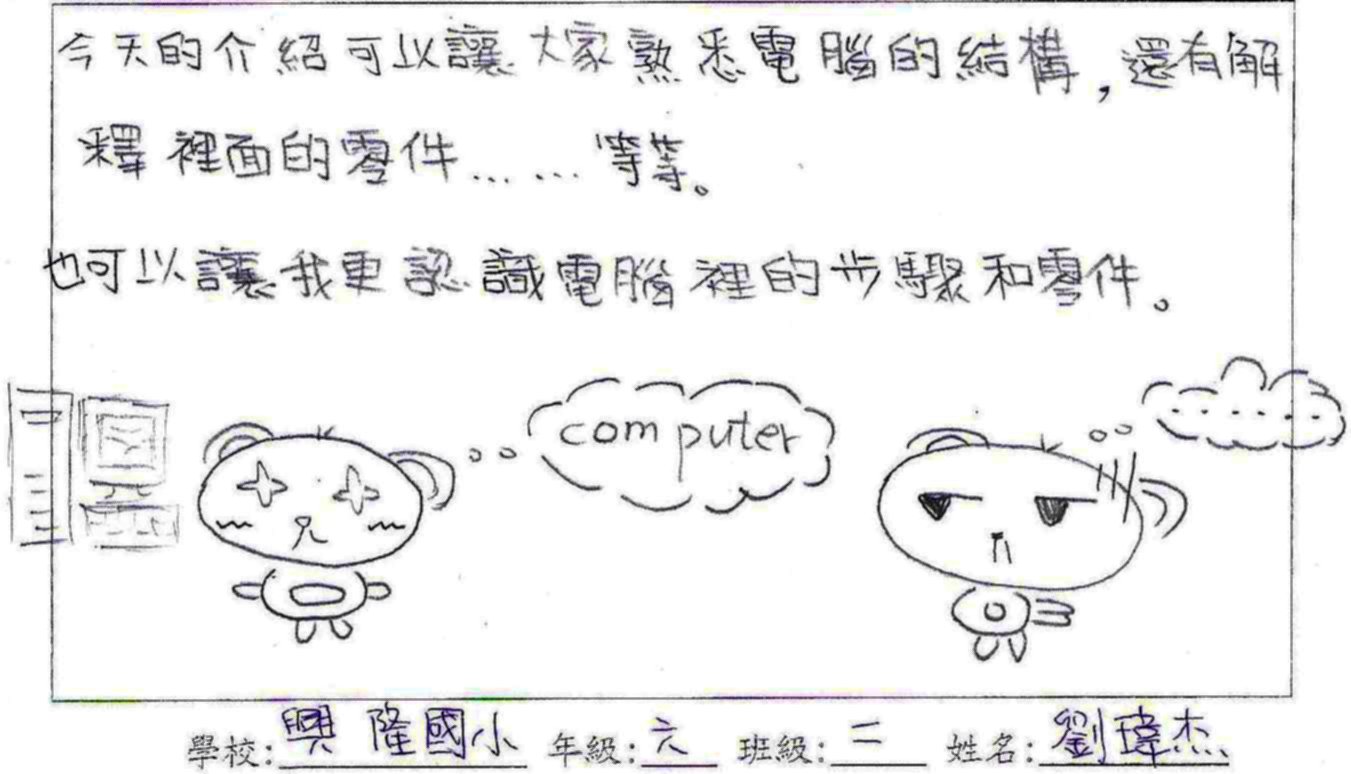 今天的介紹可以讓大家熟悉電腦的結構,還有解
釋裡面的零件……等等。
也可以讓我更認識電腦裡的步驟和零件。
computer
.......
學校:興隆國小 年級:六 班級:二 姓名:劉瑋杰